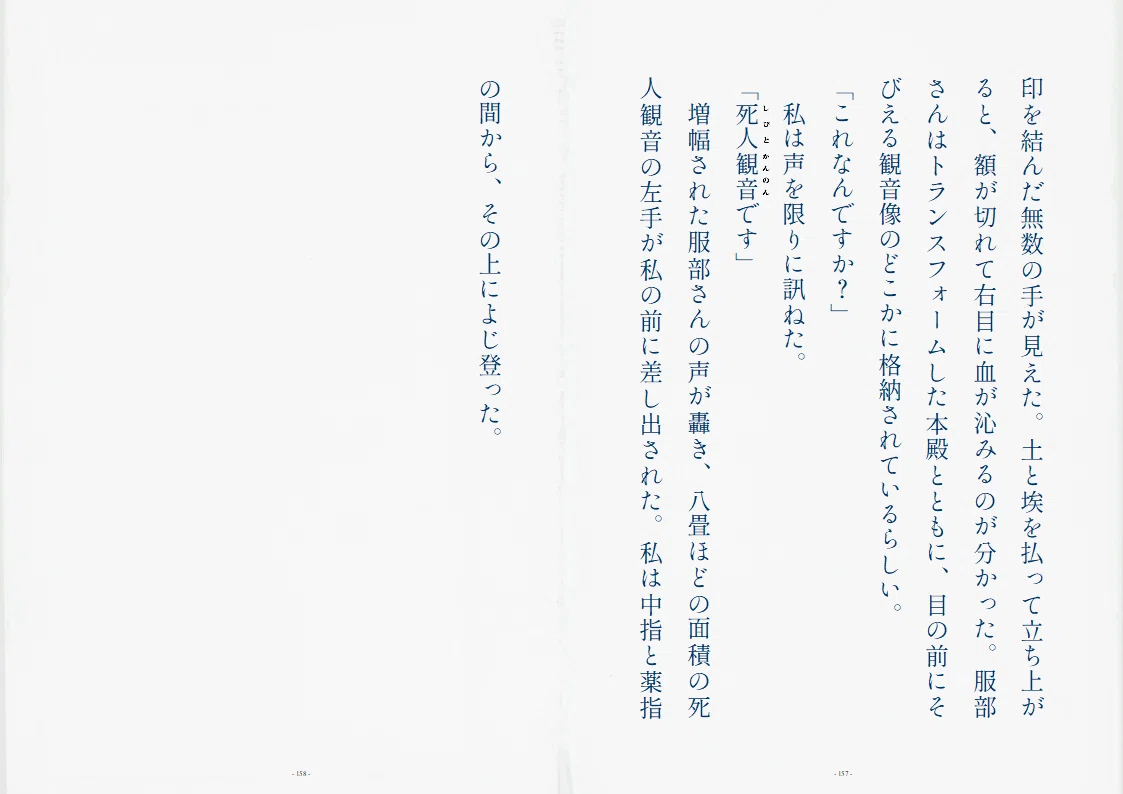 印を結んだ無数の手が見えた。土と埃を払って立ち上が
ると、額が切れて右目に血が沁みるのが分かった。服部
さんはトランスフォームした本殿とともに、目の前にそ
びえる観音像のどこかに格納されているらしい。
「これなんですか？」
私は声を限りに訊ねた。
「死人観音です」
しびとかんのん
増幅された服部さんの声が轟き、八畳ほどの面積の死
人観音の左手が私の前に差し出された。私は中指と薬指
- 157 -
の間から、その上によじ登った。
- 158 -